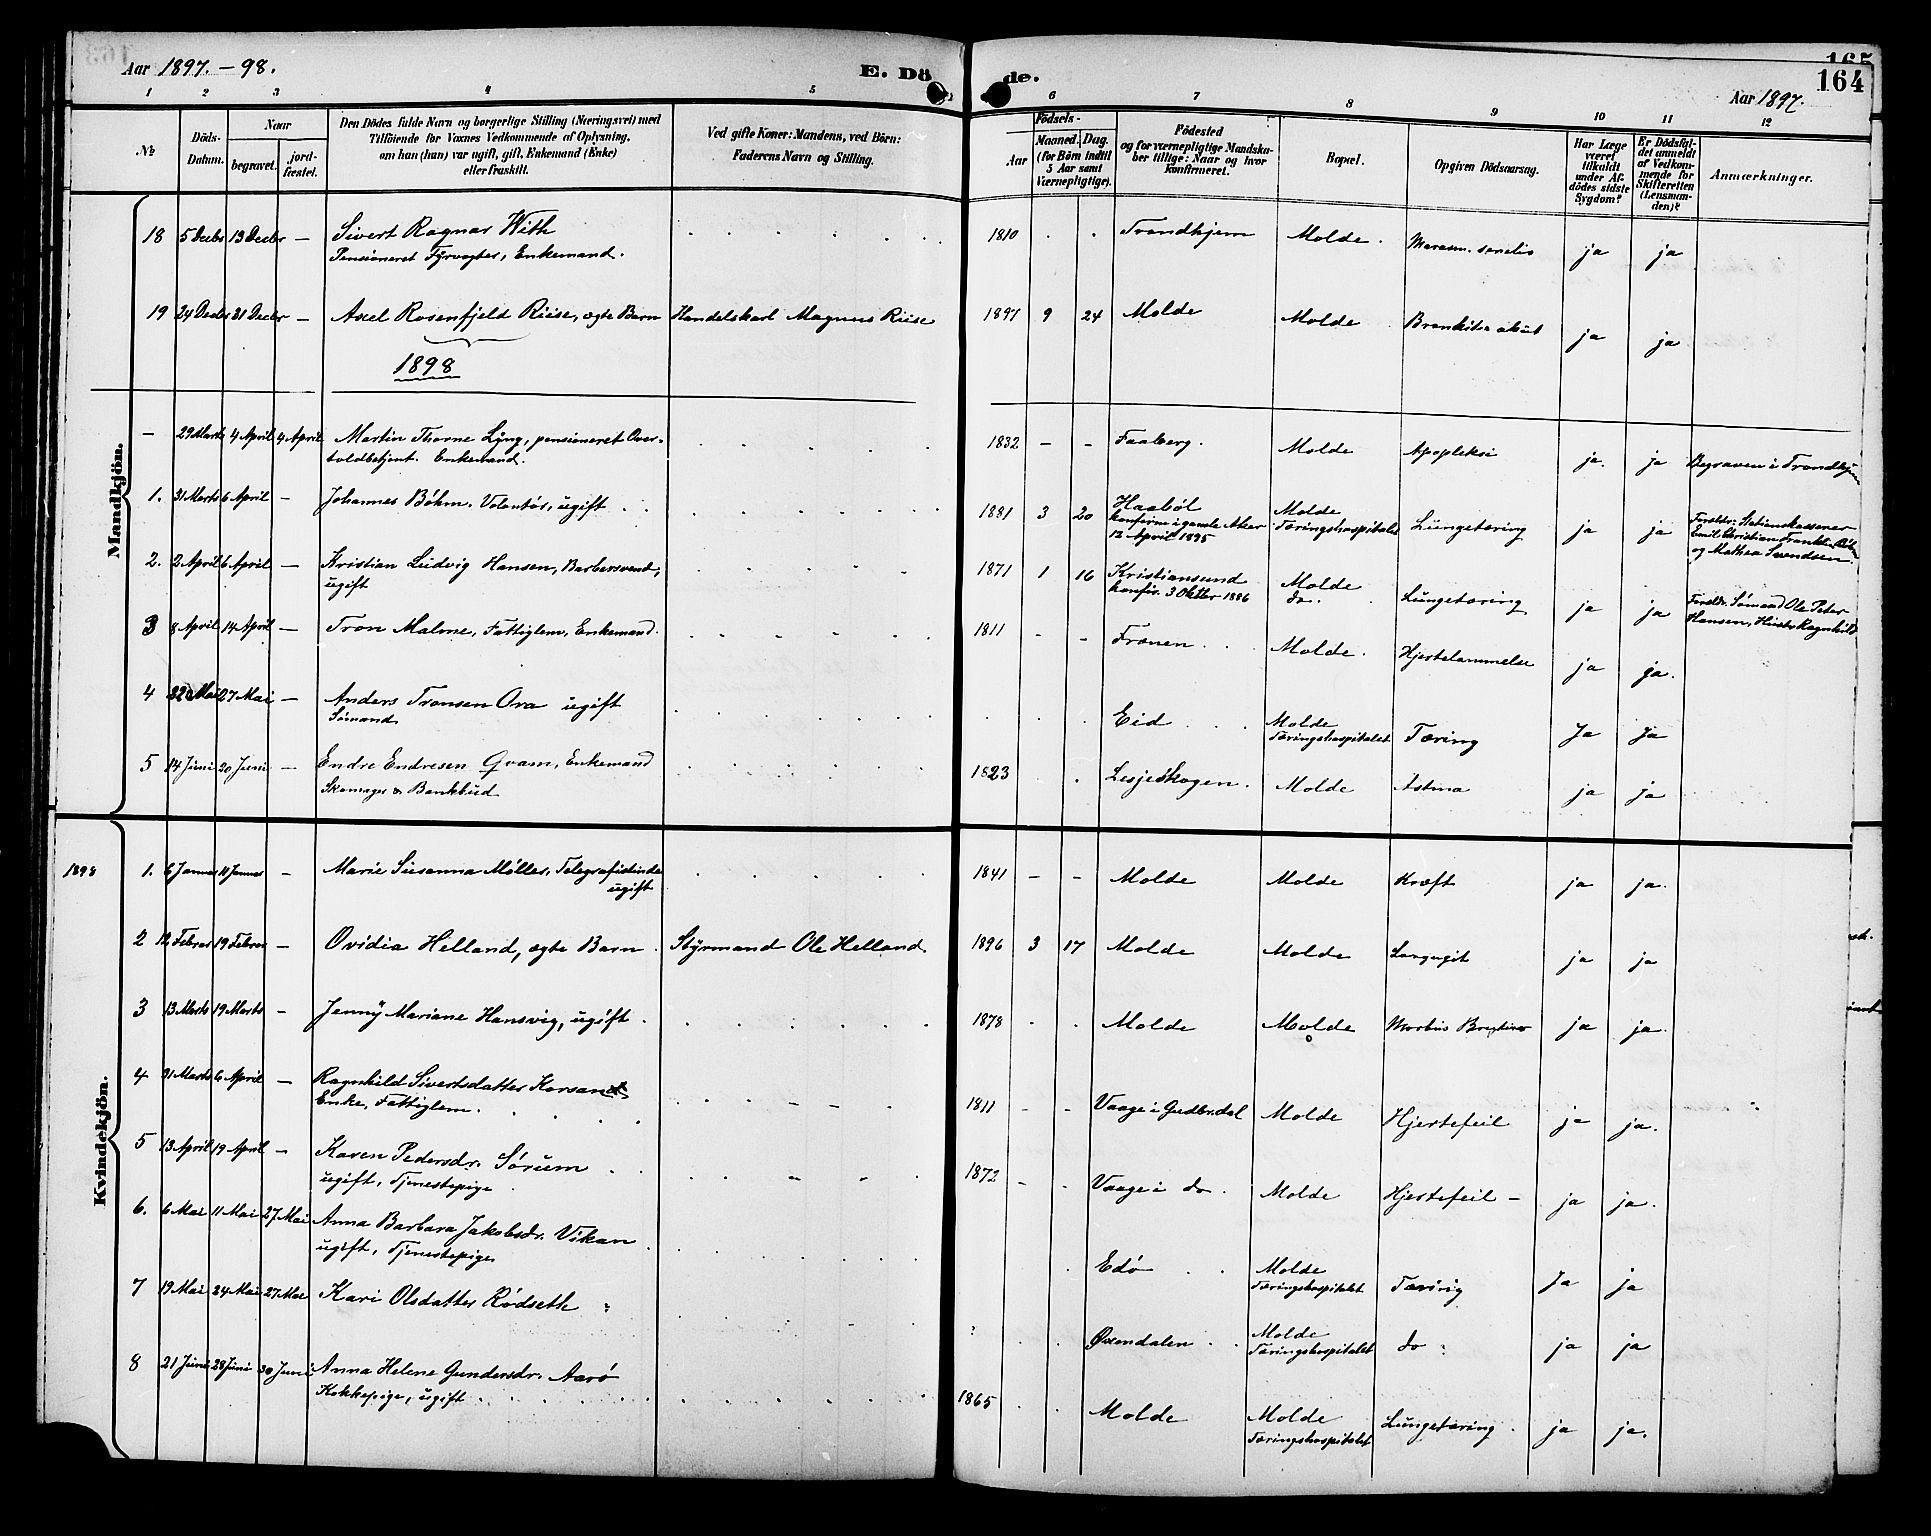 Aar 1897.-98.
E. Dö de.
165
164
Aar 1897.
1 2 3 4 5 6 7 8 9 10 11 12
№
Döds-Datum.
Naar
begravet.
jord-fæstet.
Den Dödes fulde Navn og borgerlige Stilling (Næringsvei) med
Tilföiende for Voxnes Vedkommende af Oplysning,
om han (hun) var ugift, gift, Enkemand (Enke)
eller fraskilt.
Ved gifte Koner: Mandens, ved Börn:
Faderens Navn og Stilling.
Födsels-
Aar
Maaned. Dag.
(for Börn indtil
5 Aar samt
Værnepligtige).
Födested
og for værnepligtige Mandska-
ber tillige: Naar og hvor
konfirmeret.
Bopæl.
Opgiven Dödsaarsag.
Har Læge
været
tilkaldt
under Af-
dödes sidste
Sygdom?
Er Dödsfal-
det anmeldt
af Vedkom-
mende for
Skifteretten
(Lensman-
den)?
Anmærkninger.
Mandkjön.
18 5 Decbr 13 Decbr — Sivert Ragnar With 1810 Trondhjem Molde. Marasm. senilis ja ja
Pensioneret Fyrvogter, Enkemand.
19 24 Decbr 31 Decbr — Axel Rosenfjeld Riise, ægte Barn Handelskarl Magnus Riise 1897 9 24 Molde Molde Bronkitis akut ja ja
1898
— 29 Marts 4 April 4 April Martin Thorne Lyng, pensioneret Over- 1832 — — Faaberg. Molde Apopleksi ja. ja Begraven i Trondhjem
toldbetjent. Enkemand.
1. 31 Marts 6 April — Johannes Bøhm. Volontør, ugift 1881 3 20 Haabøl Molde Lungetæring ja ja
konfirm i gamle Aker Tæringshospitalet
12 April 1895
Foreldr: Stationskasserer
Emil Christian Franklin Bøhm
og Mathea Svendsen.
2. 2 April 6 April — Kristian Ludvig Hansen, Barbersvend, 1871 1 16 Kristiansund Molde Lungetæring ja ja
ugift konfir. 3 Oktbr 1886 do.
Foreldr. Sømand Ole Peter
Hansen, Hustr Ragnhild
3 8 April 14 April — Tron Malme, Fattiglem, Enkemand. 1811 — — Frænen Molde. Hjertelammelse ja ja.
4 22 Mai 27 Mai — Anders Tronsen Ora ugift Eid Molde Tæring Ja Ja
Sømand Tæringshospitalet
5 14 Juni 20 Juni — Endre Endresen Qvam, Enkemand 1823 Lesjeskogen. Molde Astma ja ja
Skomager & Bankbud
Kvindekjön.
1898 1. 6 Januar 11 Januar — Marie Susanna Møller, Telegrafistinde 1841 — — Molde Molde Kræft ja ja.
ugift
2 12 Febr 19 Febr — Ovidia Helland, ægte Barn Styrmand Ole Helland 1896 3 17 Molde Molde ja ja
3 13 Marts 19 Marts — Jenny Mariane Hansvig, ugift. 1878 Molde Molde Morbus ja ja.
4 31 Marts 6 April — Ragnhild Sivertsdatter Korsan 1811 — — Vaage i Gudbr.dal Molde Hjertefeil ja ja.
Enke, Fattiglem.
5 13 April 19 April — Karen Pedersdr. Sørum 1872 — Vaage i do. Molde Hjertefeil — ja ja.
ugift, Tjenestepige
6. 6 Mai 11 Mai 27 Mai Anna Barbara Jakobsdr. Vikan Edø Molde Tæring Ja ja
ugift, Tjenestepige Tæringshospitalet
7 19 Mai 24 Mai 27 Mai Kari Olsdatter Rødseth Øxendalen Molde do ja ja
Tæringshospitalet
8 21 Juni 28 Juni 30 Juni Anna Helene Gundersdr. Aarø 1865 Molde Molde Lungetæring. ja ja.
Kokkepige, ugift Tæringshospitalet